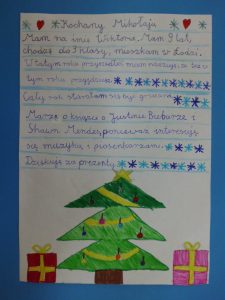 Kochany Mikołaju
Mam na imię Wiktoria. Mam 9 lat,
chodzę do 3 klasy, mieszkam w Łodzi.
W tamtym roku przyszedłeś mam nadzieję, że też w
tym roku przyjdziesz.
Cały rok starałam się być grzeczna
Marzę o książce o Justinie Bieberze i
Shawn Mendes, ponieważ interesuję
się muzyką i piosenkarzami.
Dziękuję za prezenty